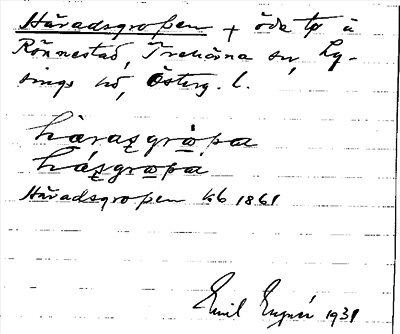 Häradsgropen + öde tp å
Rönnestad, Trehörna sn, Ly-
sings hd, Österg. l.
häradzgròpa
házgropa
Häradsgropen kb 1861
Emil 1931